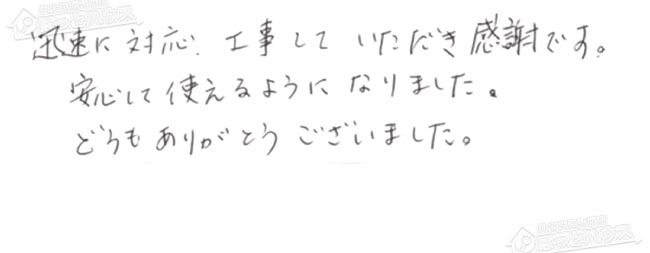 迅速に対応、工事していただき感謝です。
安心して使えるようになりました。
どうもありがとうございました。